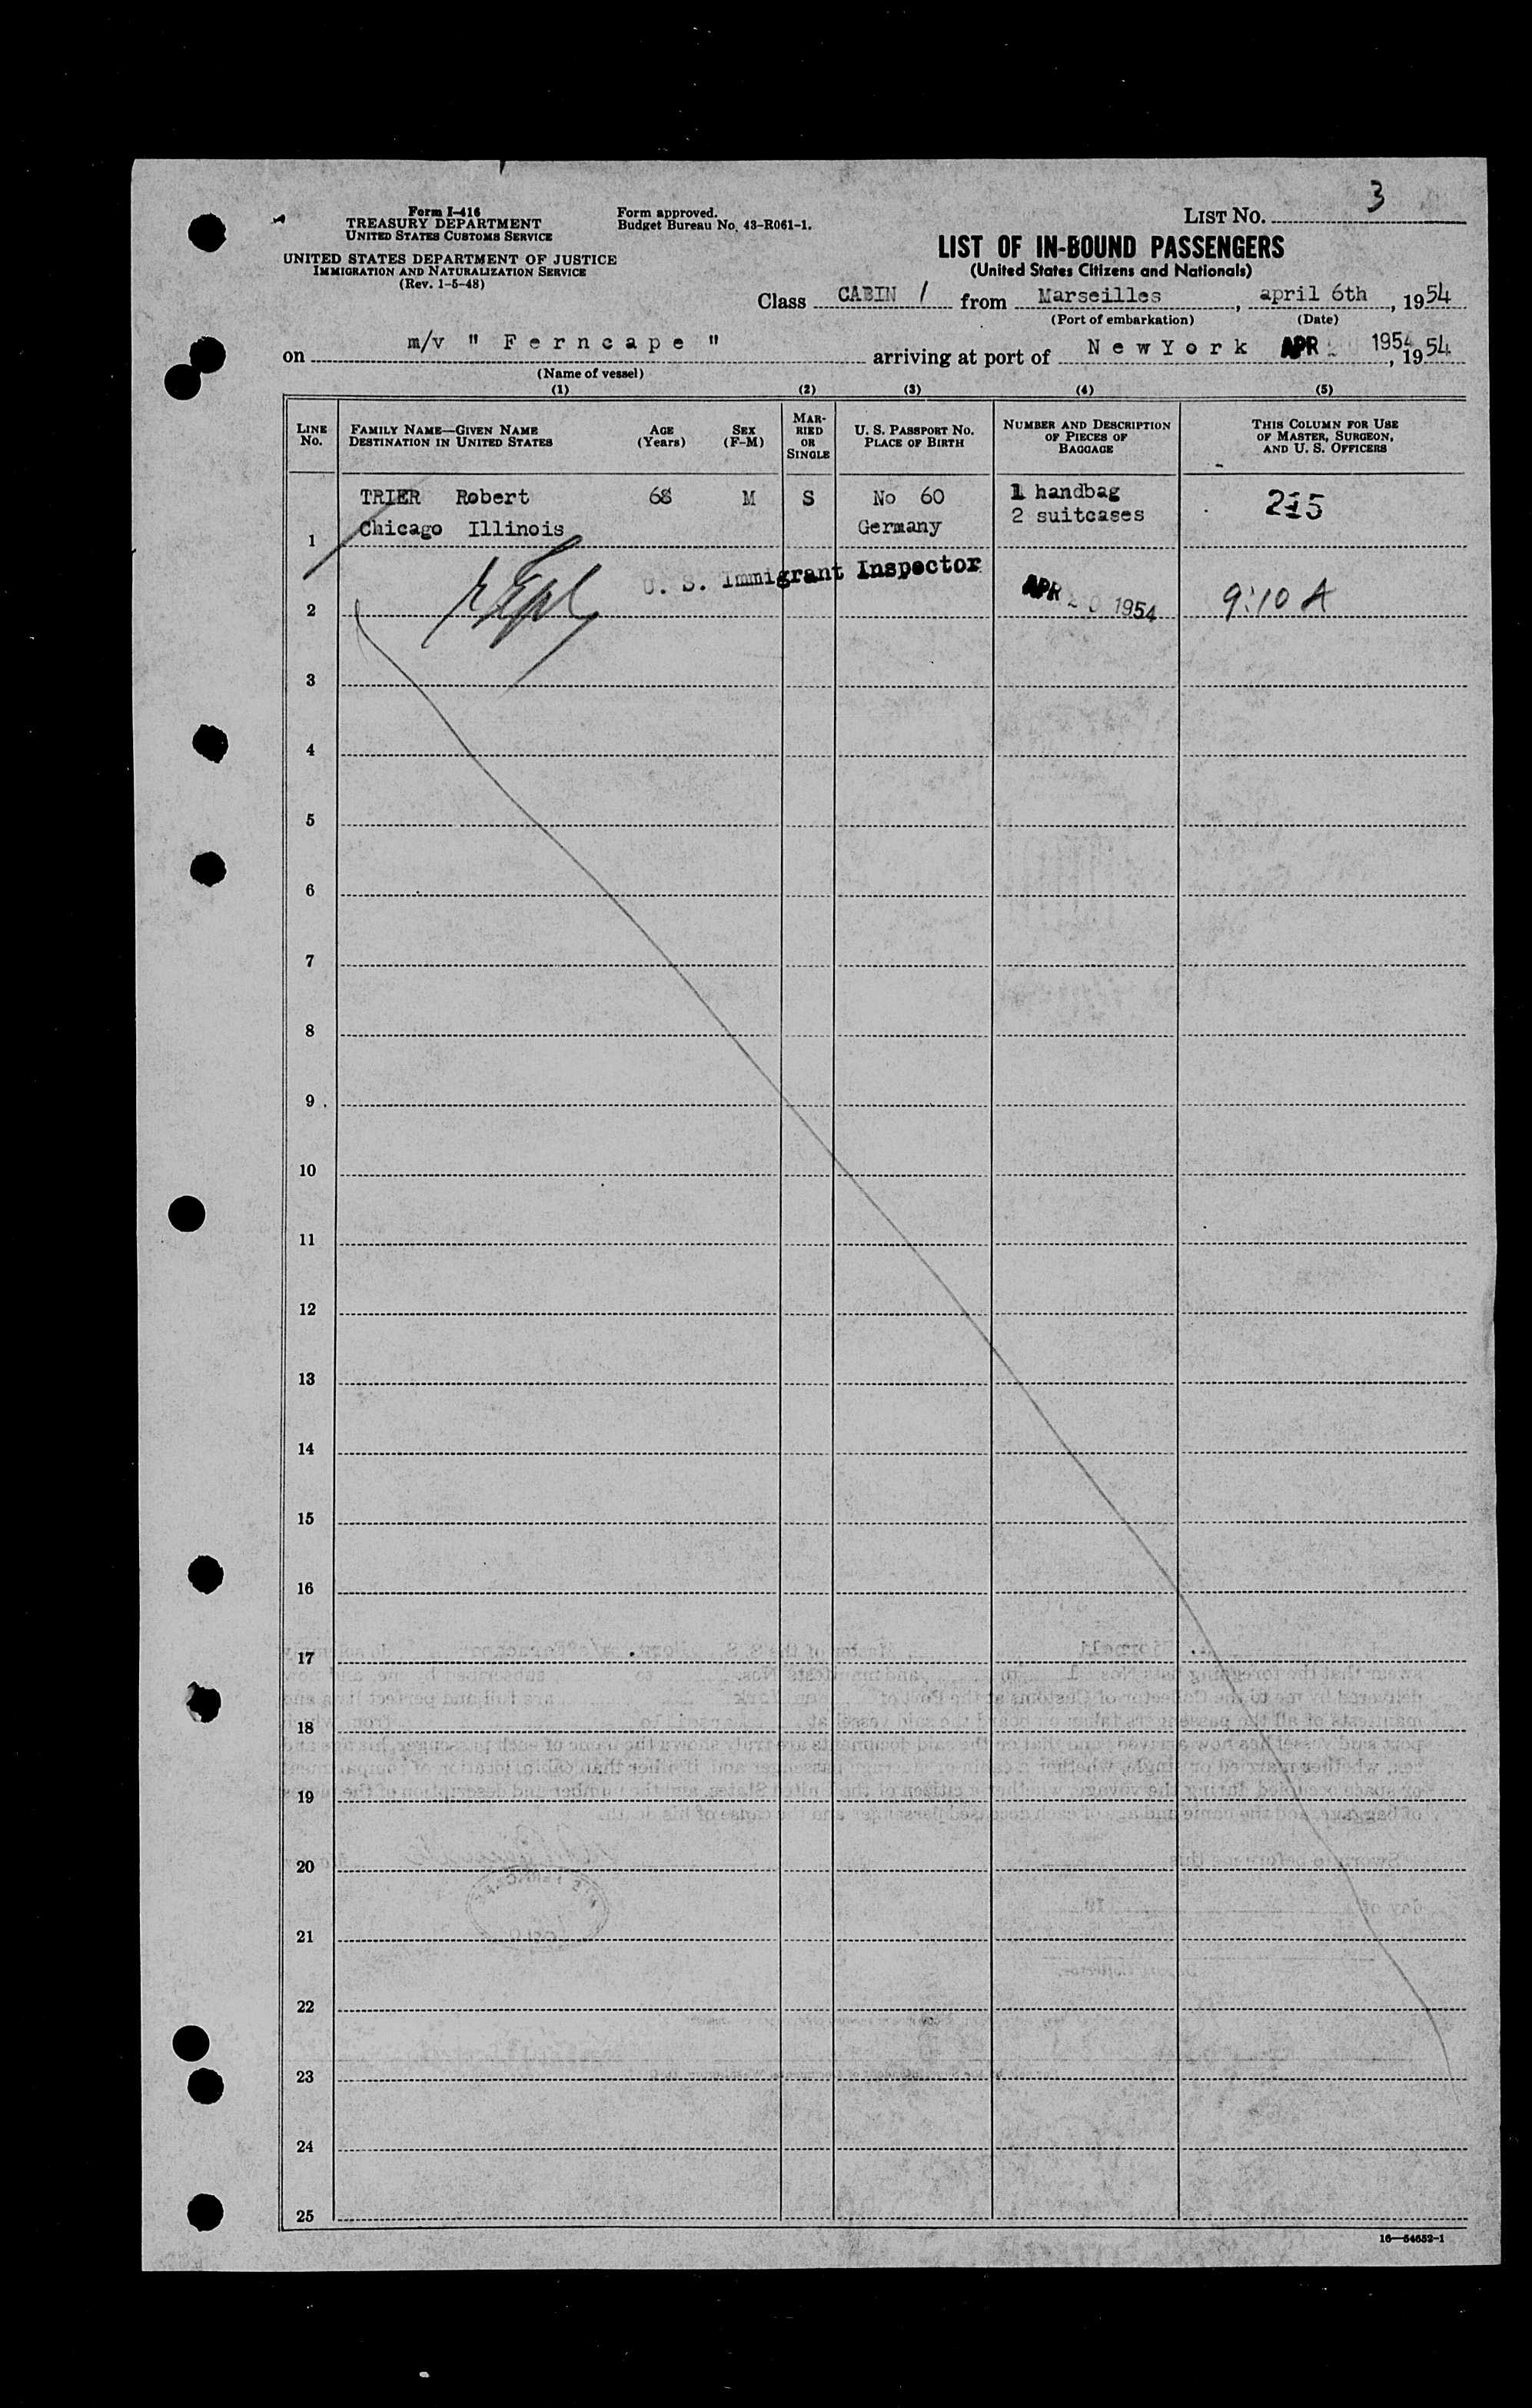 3
Form I-416
TREASURY DEPARTMENT
UNITED STATES CUSTOMS SERVICE
UNITED STATES DEPARTMENT OF JUSTICE
IMMIGRATION AND NATURALIZATION SERVICE
(Rev. 1-5-48)
Form approved.
Budget Bureau No. 43-R061-1.
LIST NO.
LIST OF IN-BOUND PASSENGERS
(United States Citizens and Nationals)
Class CABIN / from Marseilles, april 6th, 1954
(Port of embarkation) (Date)
on m/v " Ferncape " arriving at port of NewYork APR 1954, 1954
(Name of vessel)
(1) (2) (3) (4) (5)
LINE NO.
FAMILY NAME—GIVEN NAME
DESTINATION IN UNITED STATES
AGE
(Years)
SEX
(F-M)
MARRIED OR SINGLE
U. S. PASSPORT NO.
PLACE OF BIRTH
NUMBER AND DESCRIPTION
OF PIECES OF
BAGGAGE
THIS COLUMN FOR USE
OF MASTER, SURGEON,
AND U. S. OFFICERS
TRIER Robert 68 M S No 60 1 handbag 215
Chicago Illinois Germany 2 suitcases
1
U. S. Immigrant Inspector
2 APR 20 1954 9:10 A
3
4
5
6
7
8
9
10
11
12
13
14
15
16
17
18
19
20
21
22
23
24
25
16—54652-1